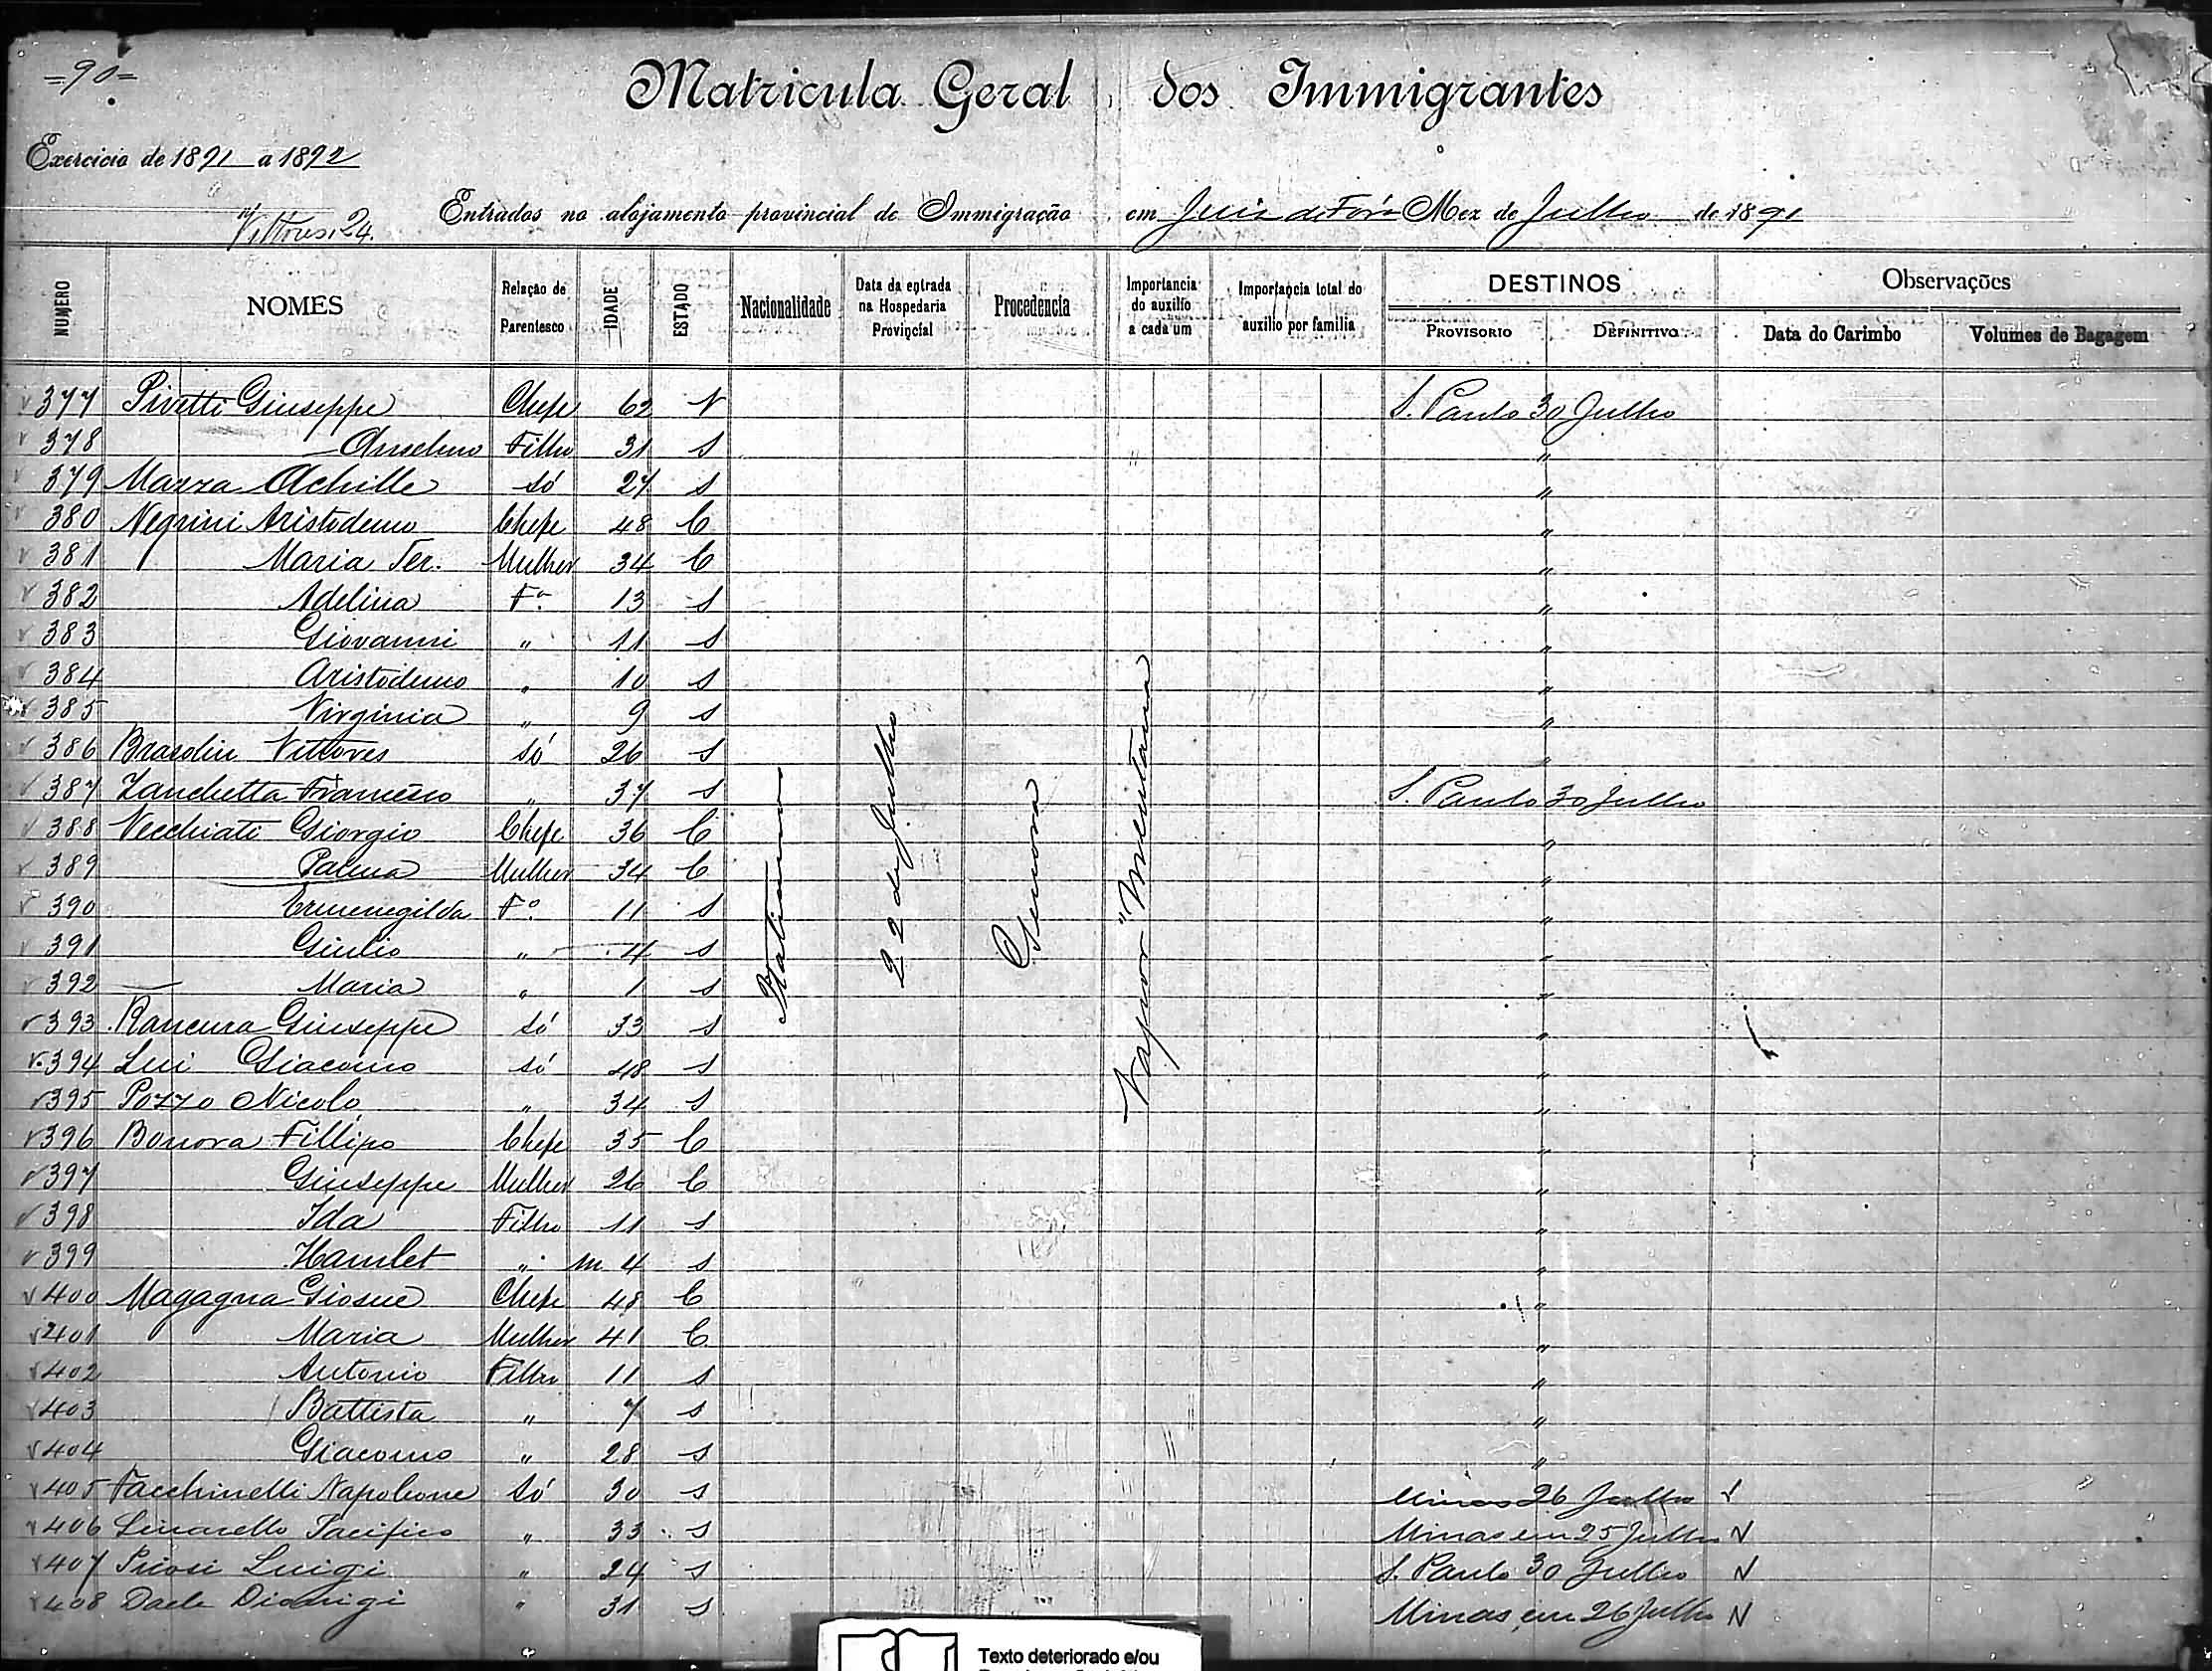 =90=
Matricula Geral dos Immigrantes
Exercicio de 1891 a 1892
Entrados no alojamento provincial de Immigração em Juiz de Fóra Mez de Julho de 1891
24.
NUMERO NOMES Relação de Parentesco IDADE ESTADO Nacionalidade Data da entrada na Hospedaria Provincial Procedencia Importancia do auxilio a cada um Importancia total do auxilio por familia DESTINOS PROVISORIO DEFINITIVO Observações Data do Carimbo Volumes de Bagagem
377 Pivetti Giuseppe Chefe 62 V S. Paulo 30 Julho
378 — Anselmo Filho 31 S "
379 Mazza Achille só 27 S "
380 Negrini Aristodemo Chefe 48 C "
381 Maria Ter. Mulher 34 C "
382 Adelina Fª 13 S "
383 Giovanni " 11 S "
384 Aristodemo " 10 S "
385 Virginia " 9 S "
386 Brasolin Vittores só 26 S "
387 Zanchetta Francesco " 37 S S. Paulo 30 Julho
388 Vecchiati Giorgio Chefe 36 C "
389 Palma Mulher 34 C "
390 Ermenegilda Fº 11 S "
391 Giulio " 4 S "
392 Maria " 1 S "
393 Rancura Giuseppe só 33 S "
394 Lui Giacomo só 48 S "
395 Pozzo Nicolo " 34 S "
396 Bonora Fillipo Chefe 35 C "
397 Giuseppe Mulher 26 C "
398 Ida Filho 11 S "
399 Hamlet " m 4 S "
400 Magagna Giosue Chefe 48 C "
401 Maria Mulher 41 C "
402 Antonio Filho 11 S "
403 Battista " 7 S "
404 Giacomo " 28 S "
405 Facchinelli Napoleone só 30 S Minas 26 Julho
406 Pacifico " 33 S Minas em 25 Julho
407 Luigi " 24 S S. Paulo 30 Julho
408 Dionigi " 31 S Minas, em 26 Julho
Italiano
22 de Julho
Genova
Vapor "Mentana
Texto deteriorado e/ou